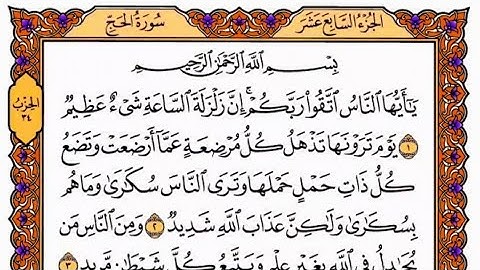 الجزء السابع عشر
سورة الحج
بِسْمِ اللَّهِ الرَّحْمَٰنِ الرَّحِيمِ
الحزب ٣٤
يَٰٓأَيُّهَا النَّاسُ اتَّقُوا رَبَّكُمْ ۚ إِنَّ زَلْزَلَةَ السَّاعَةِ شَىْءٌ عَظِيمٌ
١ يَوْمَ تَرَوْنَهَا تَذْهَلُ كُلُّ مُرْضِعَةٍ عَمَّآ أَرْضَعَتْ وَتَضَعُ
كُلُّ ذَاتِ حَمْلٍ حَمْلَهَا وَتَرَى النَّاسَ سُكَٰرَىٰ وَمَا هُم
بِسُكَٰرَىٰ وَلَٰكِنَّ عَذَابَ اللَّهِ شَدِيدٌ ٢ وَمِنَ النَّاسِ مَن
يُجَٰدِلُ فِى اللَّهِ بِغَيْرِ عِلْمٍ وَيَتَّبِعُ كُلَّ شَيْطَٰنٍ مَّرِيدٍ ٣